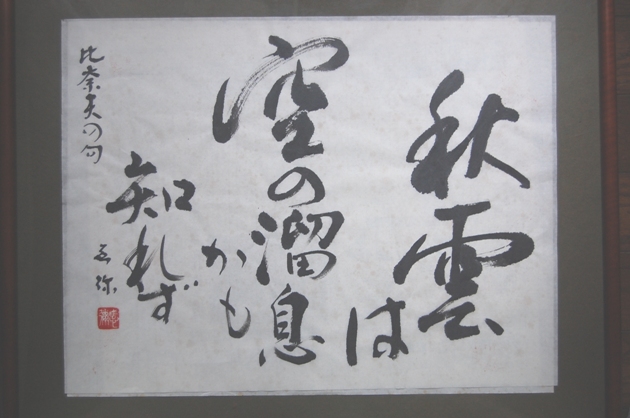 秋雲は
空の溜息
かも
知れず
比奈夫の句